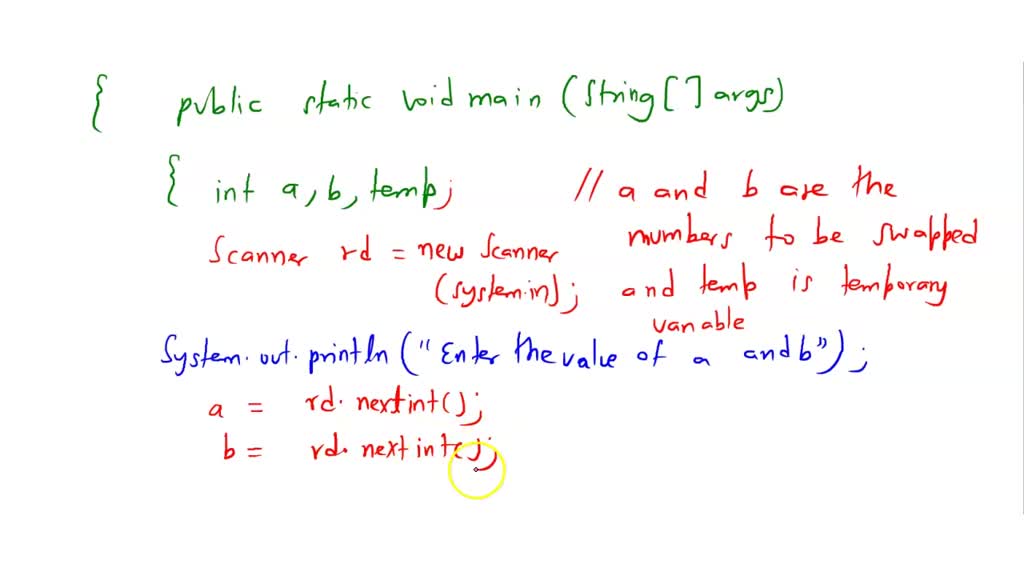 { public static void main (String[] args)
{ int a, b, temp; // a and b are the
numbers to be swapped
Scanner rd = new Scanner
(system.in); and temp is temporary
variable
System.out.println("Enter the value of a and b");
a = rd.nextint();
b = rd.nextint();